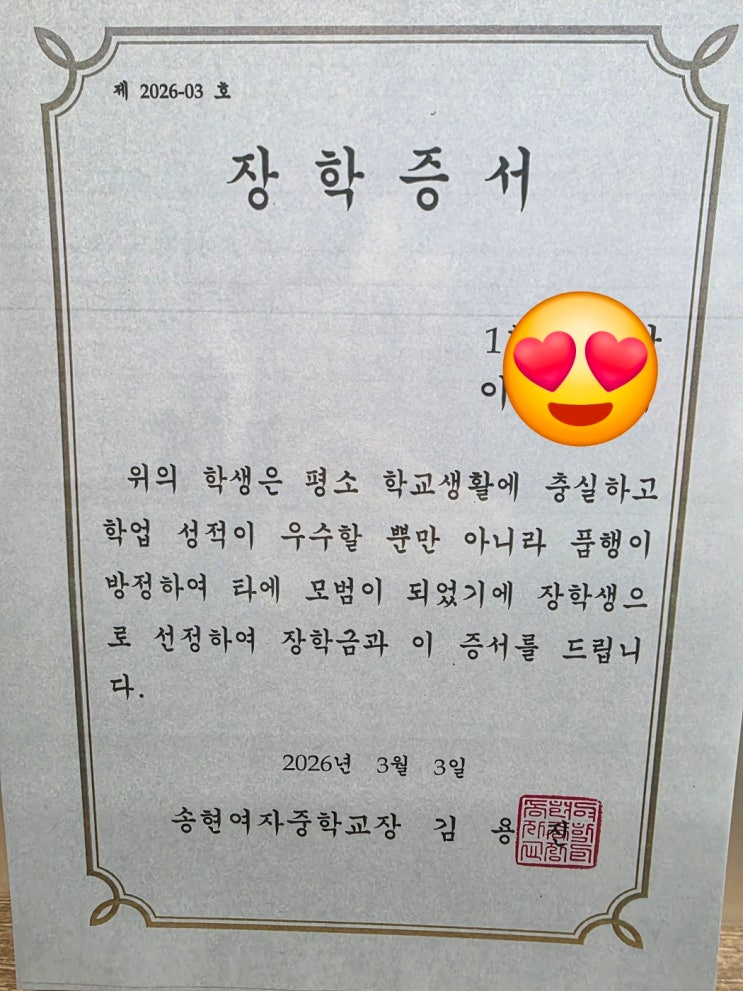 제 2026-03 호
장 학 증 서
1
이
위의 학생은 평소 학교생활에 충실하고
학업 성적이 우수할 뿐만 아니라 품행이
방정하여 타에 모범이 되었기에 장학생으
로 선정하여 장학금과 이 증서를 드립니
다.
2026년 3월 3일
송현여자중학교장 김 용 진